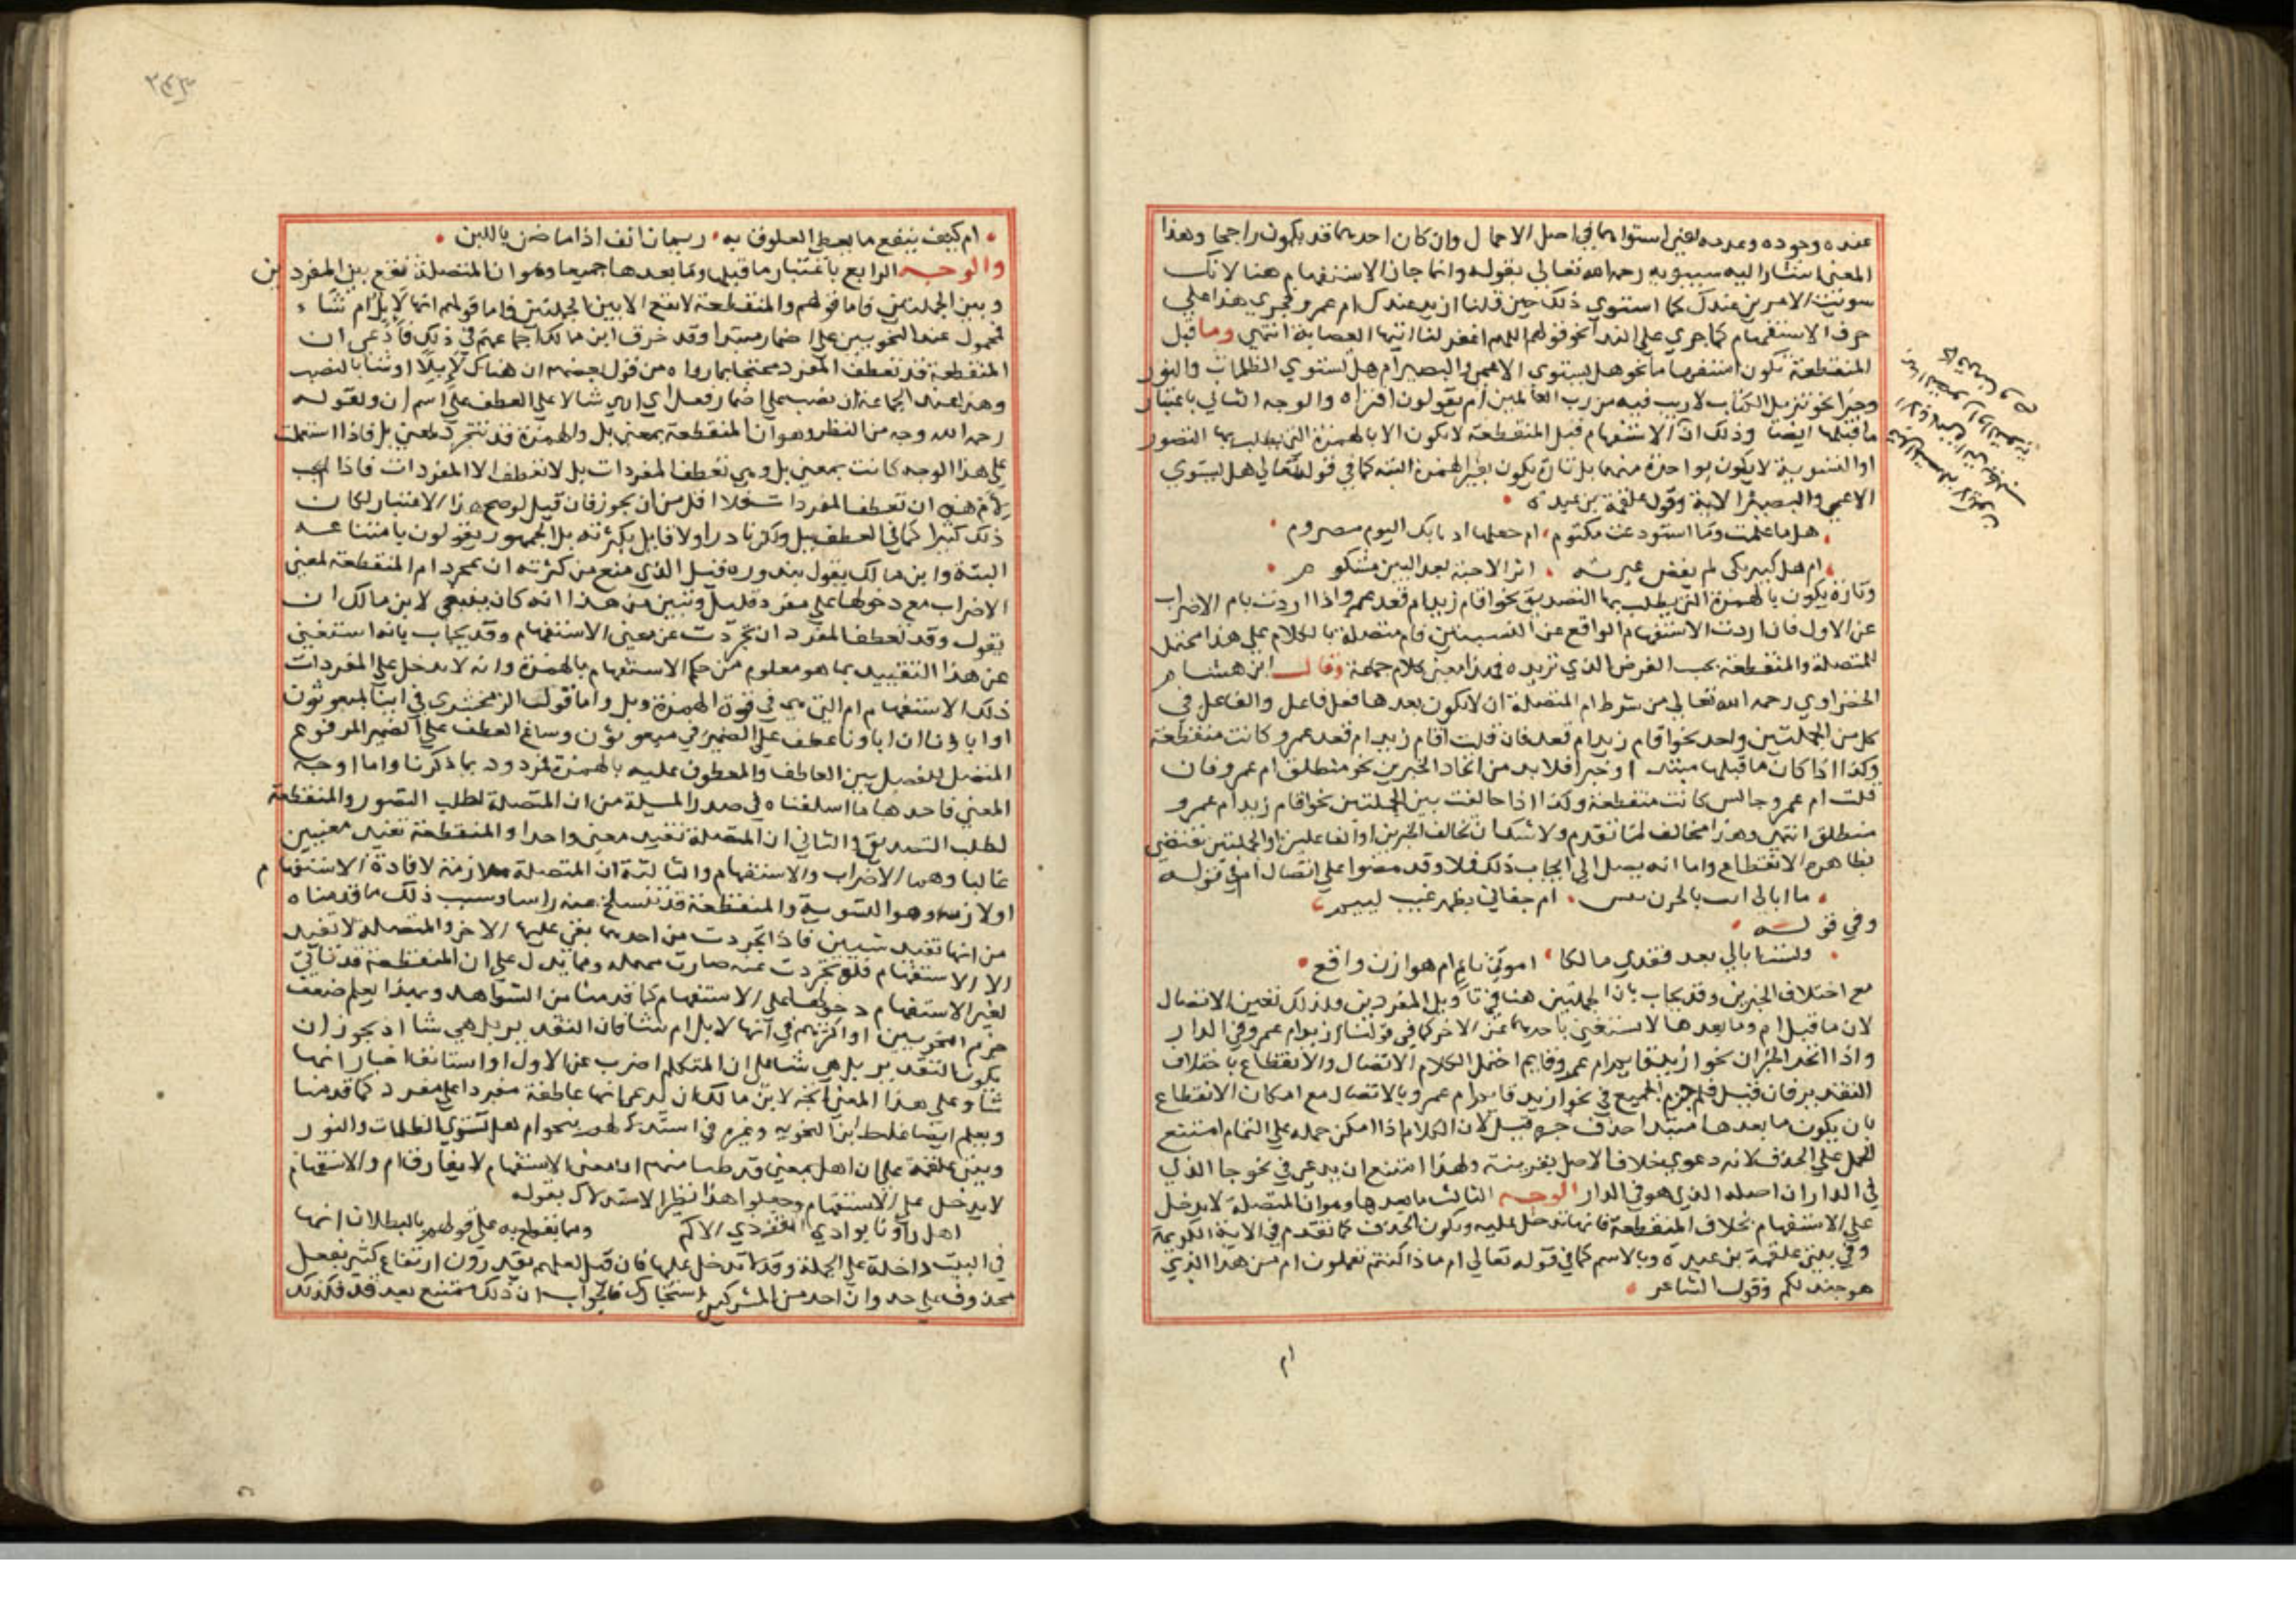 عنده وجوده وعدمه لغير استوائهما في اصل الاحتمال وان كان احدهما قد يكون راجحا وهذا
المعنى اشار اليه سيبويه رحمه الله تعالى بقوله وانما جاز الاستفهام هنا لانك
سويت الامرين عندك كما استوي ذلك حين قلنا ازيد عندك ام عمرو فجري هذا علي
حرف الاستفهام كما جري علي الندا نحو قولهم اللهم اغفر لنا ايتها العصابة انتهي وما قبل
المنقطعة يكون استفهاما نحو هل يستوي الاعمى والبصير ام هل تستوي الظلمات والنور
وخبرا نحو تنزيل الكتاب لا ريب فيه من رب العالمين ام يقولون افتراه والوجه الثاني باعتبار
ما قبلها ايضا وذلك ان الاستفهام قبل المنقطعة لا يكون الا بالهمزة التي يطلب بها التصور
او التسوية لا يكون بواحدة منهما بل تارة يكون بغير الهمزة البتة كما في قوله تعالي هل يستوي
الاعمى والبصير الاية وقول علقمة بن عبدة
هل ما علمت وما استودعت مكتوم ام حبلها اذ نابك اليوم مصروم
ام هل كبير بكى لم يقض عبرته اثر الاحبة بعد البين مشكوم
وتارة يكون بالهمزة التي يطلب بها التصديق نحو اقام زيد ام قعد عمرو اذا اردت بام الاضراب
عن الاول فان اردت الاستفهام الواقع عن النسبتين فام متصلة بالكلام علي هذا محتمل
للمتصلة والمنقطعة بحسب الغرض الذي تريده هذا معنى كلام جماعة وقال ابن هشام
الخضراوي رحمه الله تعالي من شرط ام المتصلة ان لا يكون بعدها فعل فاعل والفاعل في
كل من الجملتين واحد نحو اقام زيد ام قعد فان قلت اقام زيد ام قعد عمرو كانت منقطعة
وكذا اذا كان ما قبلها مبتدا وخبرا فلا بد من اتحاد الخبرين نحو منطلق ام عمرو فان
قلت ام عمرو جالس كانت منقطعة وكذا اذا خالفت بين الجملتين نحو اقام زيد ام عمرو
منطلق انتهي وهذا مخالف لما تقدم ولا شك ان تخالف الخبرين او الفاعلين او الجملتين تقتضي
بظاهره الانقطاع واما انه يصل الى ايجاب ذلك فلا وقد مضوا علي اتصال ام في قوله
ما ابالي انب بالحزن تيس ام جفاني بظهر غيب لئيم
وفي قوله
ولست ابالي بعد فقدي مالكا اموتي ناء ام هو الان واقع
مع اختلاف الخبرين وقد يجاب بان الجملتين هنا في تاويل المفردين ولذلك تعين الاتصال
لان ما قبل ام وما بعدها لا يستغني باحدهما عن الاخر كما في قولنا ازيد ام عمرو في الدار
واذا اتحد الخبران نحو ازيد قايم ام عمرو قايم احتمل الكلام الاتصال والانقطاع باختلاف
التقدير فان قيل فلم جزم الجميع في نحو ازيد قايم ام عمرو بالاتصال مع امكان الانقطاع
بان يكون ما بعدها مبتدا حذف خبره قيل لان الكلام اذا امكن حمله علي التمام امتنع
الحمل علي الحذف لانه دعوى خلاف الاصل بغير بينة ولهذا امتنع ان يدعي في نحو جا الذي
في الدار ان اصله الذي هو في الدار الوجه الثالث ما بعدها وهو ان المتصلة لا يدخل
علي الاستفهام بخلاف المنقطعة فانها تدخل عليه ويكون بالحرف كما تقدم في الاية الكريمة
وفي بيتي علقمة بن عبدة وبالاسم كما في قوله تعالي ام ماذا كنتم تعملون ام من هذا الذي
هو جند لكم وقول الشاعر
ام
٢٤٣
ام كيف ينفع ما يعطي العلوق به ريمان انف اذا ما ضن باللبن
والوجه الرابع باعتبار ما قبلها وما بعدها جميعا وهو ان المتصلة تقع بين المفردين
وبين الجملتين واما قولهم والمنقطعة لا تقع الا بين الجملتين فاما قولهم انها لابل ام شاء
فمحمول عند النحويين علي اضمار مبتدا وقد خرق ابن مالك اجماعهم في ذلك فادعى ان
المنقطعة قد تعطف المفرد محتجا بما رواه من قول بعضهم ان هناك لابلا ام شاء بالنصب
وهذا عند الجماعة ان نصب علي اضمار فعل اي ام اري شاء لا علي العطف علي اسم ان ولقوله
رحمه الله وجه من النظر وهو ان المنقطعة بمعنى بل والهمزة قد تتجرد لمعني بل فاذا استعملت
علي هذا الوجه كانت بمعنى بل وهي تعطف المفردات بل لا تعطف الا المفردات فاذا لم يجب
لام هذه ان تعطف المفردات فلا اقل من ان يجوز فان قيل لو صح هذا الاعتبار لكان
ذلك كثيرا كما في العطف ببل ولكن نادرا ولا قايل بكثرته بل الجمهور يقولون بامتناعه
البتة وابن مالك يقول بندوره قيل الذي منع من كثرته ان تجرد ام المنقطعة لمعنى
الاضراب مع دخولها علي مفرد قليل وتبين من هذا انه كان ينبغي لابن مالك ان
يقول وقد تعطف المفرد ان تجردت عن معنى الاستفهام وقد يجاب بانه استغني
عن هذا التقييد بما هو معلوم من حكم الاستفهام بالهمزة وانه لا يدخل علي المفردات
ذلك الاستفهام ام التي هي في قوة الهمزة وبل واما قول الزمخشري في ائنا لمبعوثون
او اباؤنا ان اباؤنا عطف علي الضمير في مبعوثون وساغ العطف علي الضمير المرفوع
المتصل للفصل بين العاطف والمعطوف عليه بالهمزة فمردود بما ذكرنا واما اوجه
المعنى فاحدها ما اسلفناه في صدر المسئلة من ان المتصلة لطلب التصور والمنقطعة
لطلب التصديق والثاني ان المتصلة تفيد معنى واحدا والمنقطعة تفيد معنيين
غالبا وهما الاضراب والاستفهام والثالثة ان المتصلة ملازمة لافادة الاستفهام
او لازمه وهو التسوية والمنقطعة قد تنسلخ عنه راسا وسبب ذلك ما قدمناه
من انها تفيد شيئين فاذا تجردت من احدهما بقي عليها الاخر والمتصلة لا تفيد
الا الاستفهام فلو تجردت عنه صارت مهملة ومما يدل علي ان المنقطعة قد تاتي
لغير الاستفهام دخولها علي الاستفهام كما قدمنا من الشواهد وبهذا يعلم ضعف
جزم النحويين او اكثرهم في انها لابل ام شاء فان التقدير بل اهي شاء اذ يجوز ان
يكون التقدير بل هي شاء علي ان المتكلم اضرب عن الاول او استانف اخبار انها
شاء وعلي هذا المعنى اتجه لابن مالك ان يدعي انها عاطفة مفردا علي مفرد كما قدمنا
ويعلم ايضا غلط ابن النحويه وغيره في استدلالهم بنحو ام هل تستوي الظلمات والنور
وبيتي علقمة علي ان هل بمعنى قد ظنا منهم ان معنى الاستفهام لا يفارق ام والاستفهام
لا يدخل علي الاستفهام وجعلوا هذا نظير الاستدلال بقوله
اهل راونا بوادي القف ذي الاكم ومما يقطع به علي قولهم بالبطلان انها
في البيت داخلة علي الجملة وقد لا تدخل عليها فان قيل لعلهم يقدرون ارتفاع كثير بفعل
محذوف علي حد وان احد من المشركين استجارك فالجواب ان ذلك ممتنع بعد قد فكذلك